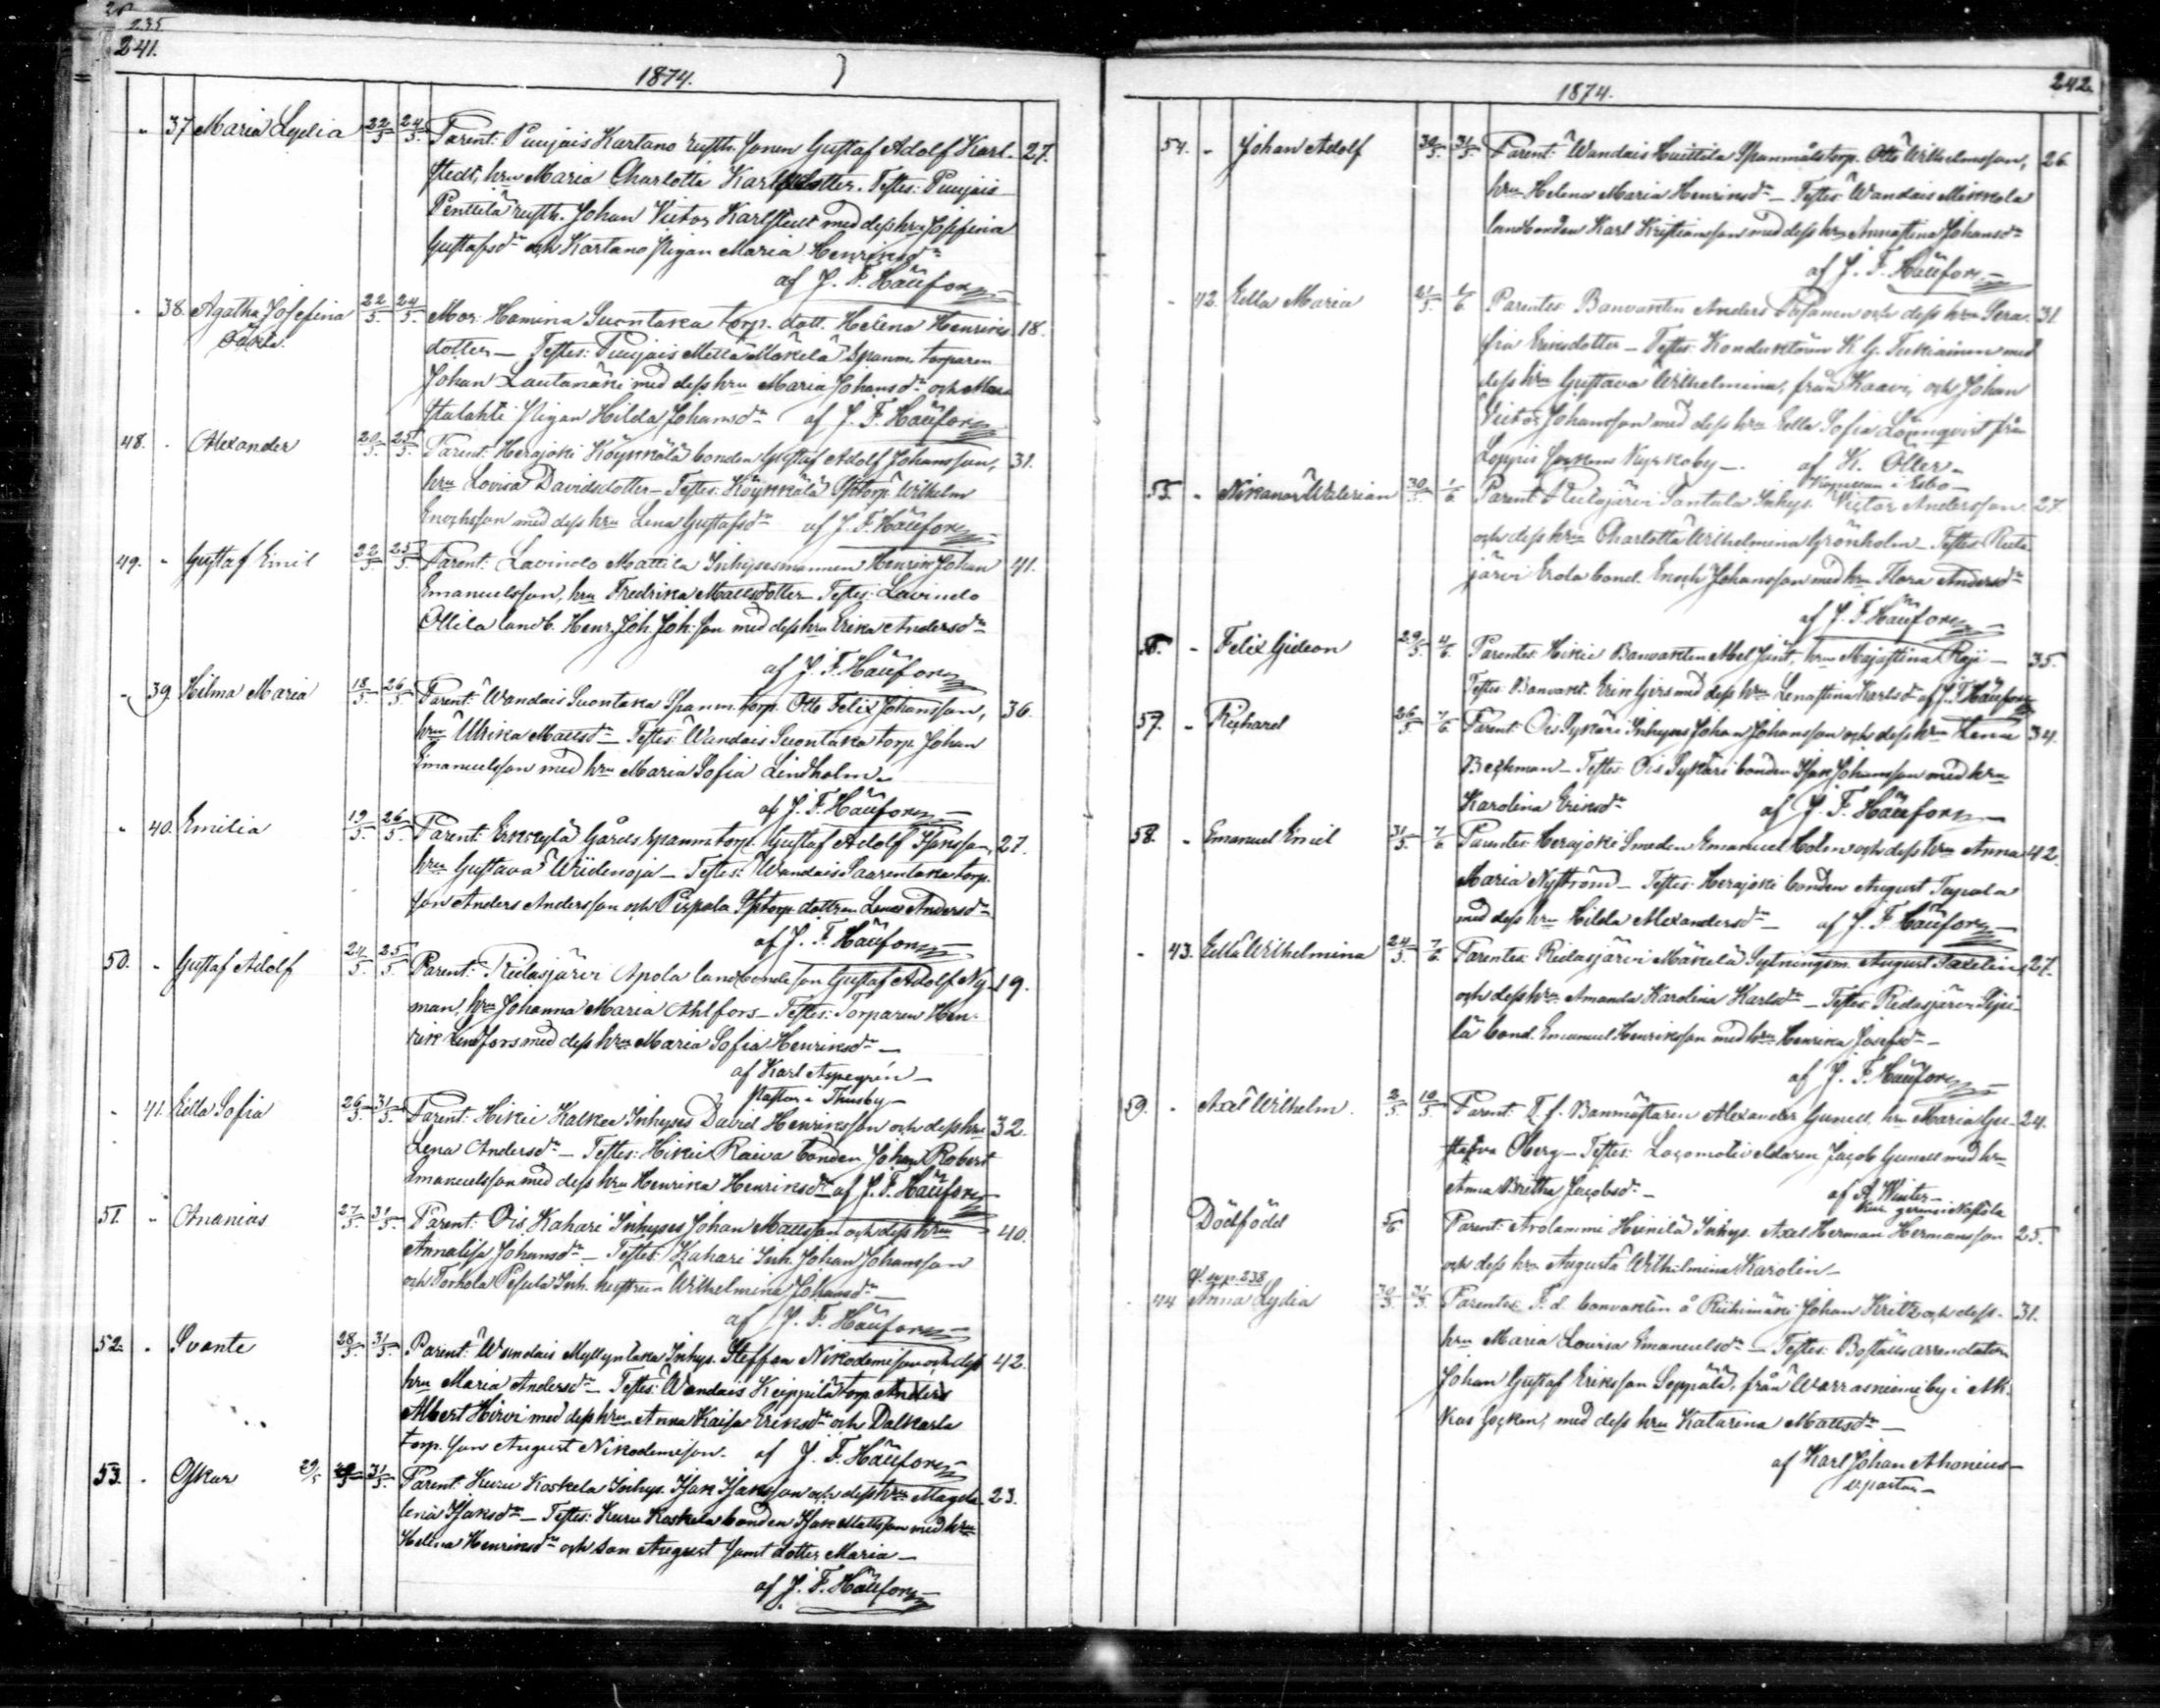 235
241.
1874.
" 37 Maria Lydia 22/5 24/5 Parent: Puujais Kartano rusth. sonen Gustaf Adolf Karl- 27.
stedt, hru Maria Charlotta Karlsdotter. Testes: Puujais
Penttilä rusth. Johan Victor Karlstedt med dess hru Josefina
Gustafsdr och Kartano pigan Maria Henriksdr
af J. F. Häufors
" 38. Agatha Josefina 22/5 24/5 Mor: Hamina Suontaka torp. dott. Helena Henriks- 18.
Oäkta.
dotter – Testes: Puujais Mellä Mäkelä Spanm. torparen
Johan Lautamäki med dess hru Maria Johansdr och
pigan Hilda Johansdr af J. F. Häufors
48. " Alexander 20/5 25/5 Parent: Herajoki Köykkälä bonden Gustaf Adolf Johansson, 31.
hru Lovisa Davidsdotter – Testes: Köykkälä torp. Wilhelm
Enochsson med dess hru Lena Gustafsdr af J. F. Häufors
49. " Gustaf Emil 22/5 25/5 Parent: Lavindo Mattila Inhysesmannen Henrik Johan 41.
Emanuelsson, hru Fredrika Mattsdotter – Testes: Lavindo
Ollila landb. Henr. Joh. Joh:son med dess hru Erika Andersdr
af J. F. Häufors
" 39. Hilma Maria 18/5 26/5 Parent: Wandais Suontaka Spanm. torp. Otto Felix Johansson, 36.
hru Ulrika Mattsdr – Testes: Wandais Suontaka torp. Johan
Emanuelsson med hru Maria Sofia Lindholm –
af J. F. Häufors
" 40. Emilia 19/5 26/5 Parent: Erkkylä Gårds spanm. torp. Gustaf Adolf Isaksson, 27.
hru Gustava Wiidenoja – Testes: Wandais Saarentaka torp.
son Anders Andersson och Pispala torp. dottren Lena Andersdr
af J. F. Häufors
50. " Gustaf Adolf 24/5 25/5 Parent: Ridasjärvi Apola landbonde son Gustaf Adolf Ny- 19.
man, hru Johanna Maria Ahlfors – Testes: Torparen Hen-
rik Lindfors med dess hru Maria Sofia Henriksdr –
af Karl Aspegrén –
Pastor i Thusby –
" 41. Edla Sofia 26/5 31/5 Parent: Hikiä Kalkea Inhyses David Henriksson och dess hru 32.
Lena Andersdr – Testes: Hikiä Raiva bonden Johan Robert
Emanuelsson med dess hru Henrika Henriksdr af J. F. Häufors
51. " Ananias 27/5 31/5 Parent: Ois Kahari Inhyses Johan Mattsson och dess hru 40.
Annalisa Johansdr – Testes: Kahari Inh. Johan Johansson
och Torhola Pesula Inh. hustrun Wilhelmina Johansdr –
af J. F. Häufors
52. " Svante 28/5 31/5 Parent: Wandais Myllyntaka Inhys. Steffan Nikodemisson och dess 42.
hru Maria Andersdr – Testes: Wandais Keippilä torp. Anders
Albert Hirvi med dess hru Anna Kaisa Eriksdr och Dalkarla
torp. son August Nikodemisson. af J. F. Häufors
53. " Oskar 29/5 31/5 Parent: Kuru Koskela Inhys. Isak Isaksson och dess hru Magda- 23.
lena Isaksdr – Testes: Kuru Koskela bonden Isak Mattsson med hru
Helena Henriksdr och son August samt dotter Maria –
af J. F. Häufors
242.
1874.
54. " Johan Adolf 30/5 31/5 Parent: Wandais Huittila Spanmålstorp. Otto Wilhelmsson, 26.
hru Helena Maria Henriksdr – Testes: Wandais Mikkola
landbonden Karl Kristiansson med dess hru Annastina Johansdr
af J. F. Häufors
" 42. Edla Maria 21/5 1/6 Parentes: Banvakten Anders och dess hru Sera- 31.
fia Eriksdotter – Testes: Konduktören K. G. Tukiainen med
dess hru Gustava Wilhelmina, från Kaavi, och Johan
Victor Johansson med dess hru Edla Sofia Lönnqvist från
Loppis Sockens Kyrkoby –. af K. Oller –
Kapellan i Esbo –
55. " Nikanor Walerian 30/5 1/6 Parent: Ridasjärvi Santala Inhys. Victor Andersson 27.
och dess hru Charlotta Wilhelmina Grönholm – Testes: Rida-
järvi Erola bond. Enoch Johansson med hru Flora Andersdr
af J. F. Häufors
56. " Felix Gideon 29/5 4/6 Parentes: Hikiä Banvakten Abel hru Majastina – 35.
Testes: Banvakt. Erik med dess hru Lenastina Karlsdr af J. F. Häufors
57. " Richard 26/5 7/6 Parent: Ois Sykäri Inhyses Johan Johansson och dess hru 34.
Beckman – Testes: Ois Sykäri bonden Isak Johansson med hru
Karolina Eriksdr af J. F. Häufors
58. " Emanuel Emil 31/5 7/6 Parentes: Herajoki Smeden Emanuel Holm och dess hru Anna 42.
Maria Nyström – Testes: Herajoki bonden August Tapola
med dess hru Hilda Alexandersdr – af J. F. Häufors
" 43. Edla Wilhelmina 24/5 7/6 Parentes: Ridasjärvi Mäkelä Sytningsm. August Taxelin, 27.
och dess hru Amanda Karolina Karlsdr – Testes: Ridasjärvi
lä bond. Emanuel Henriksson med hru Henrika Josefsdr –
af J. F. Häufors
59. " Axel Wilhelm. 2/5 10/5 Parent: T. f. Banmästaren Alexander Gunell, hru Maria Gu- 24.
stava Öberg – Testes: Locomotiveldaren Jacob Gunell med hru
Anna Britha Jacobsdr – af A. Winter –
Dödfödd 5/6 Parent: Arolammi Heinilä Inhys. Axel Herman Hermansson 25.
och dess hru Augusta Wilhelmina Karolin –
238
44 Anna Lydia 30/5 31/5 Parentes: F. d. banvakten å Riihimäki Johan Kritz och dess 31.
hru Maria Lovisa Emanuelsdr – Testes: Boställs arrendatorn
Johan Gustaf Eriksson Seppälä, från Warrasniemi by i Ak-
kas Socken, med dess hru Katarina Mattsdr –
af Karl Johan Ahonius –
v. pastor –